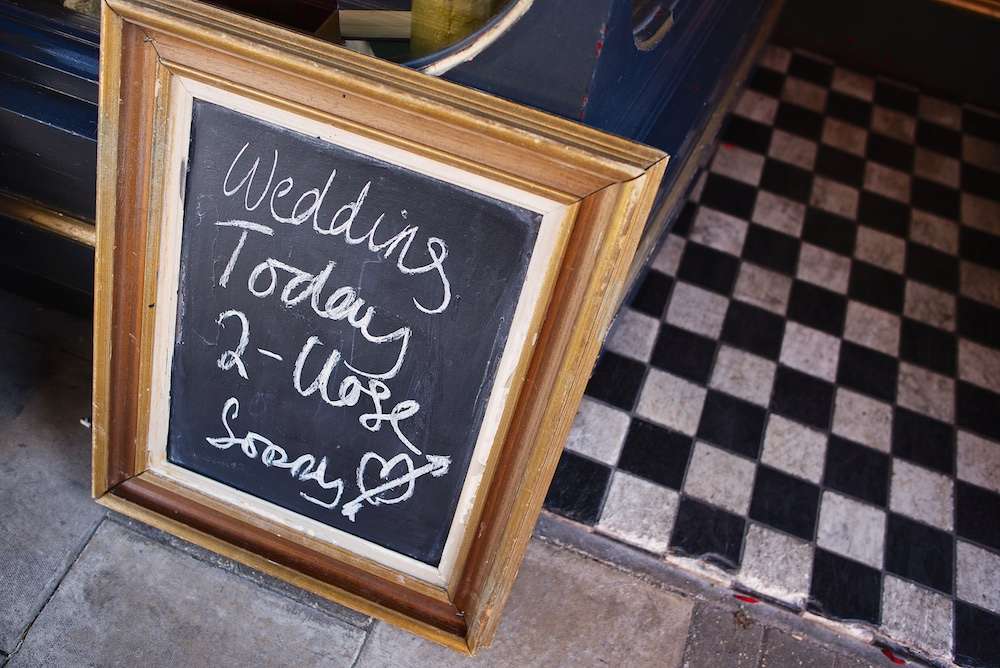 Wedding
Today
2-Close
Sorry